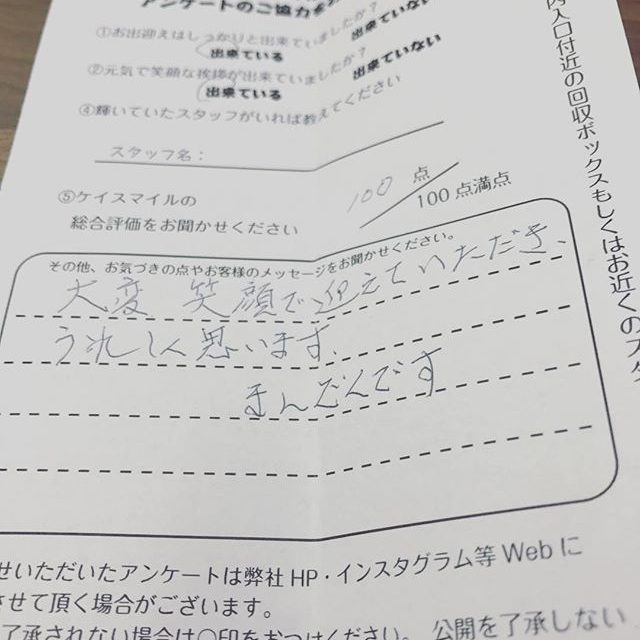 アンケートのご協力を
①お出迎えはしっかりと出来ていましたか？
出来ている 出来ていない
②元気で笑顔な挨拶が出来ていましたか？
出来ている 出来ていない
④輝いていたスタッフがいれば教えてください
スタッフ名：
⑤ケイスマイルの
総合評価をお聞かせください
100 点
100点満点
その他、お気づきの点やお客様のメッセージをお聞かせください。
大変 笑顔で迎えていただき、
うれしく思います。
まんぞくです
せいただいたアンケートは弊社HP・インスタグラム等Webに
させて頂く場合がございます。
了承されない場合は○印をおつけください。 公開を了承しない
内入口付近の回収ボックスもしくはお近くのスタ